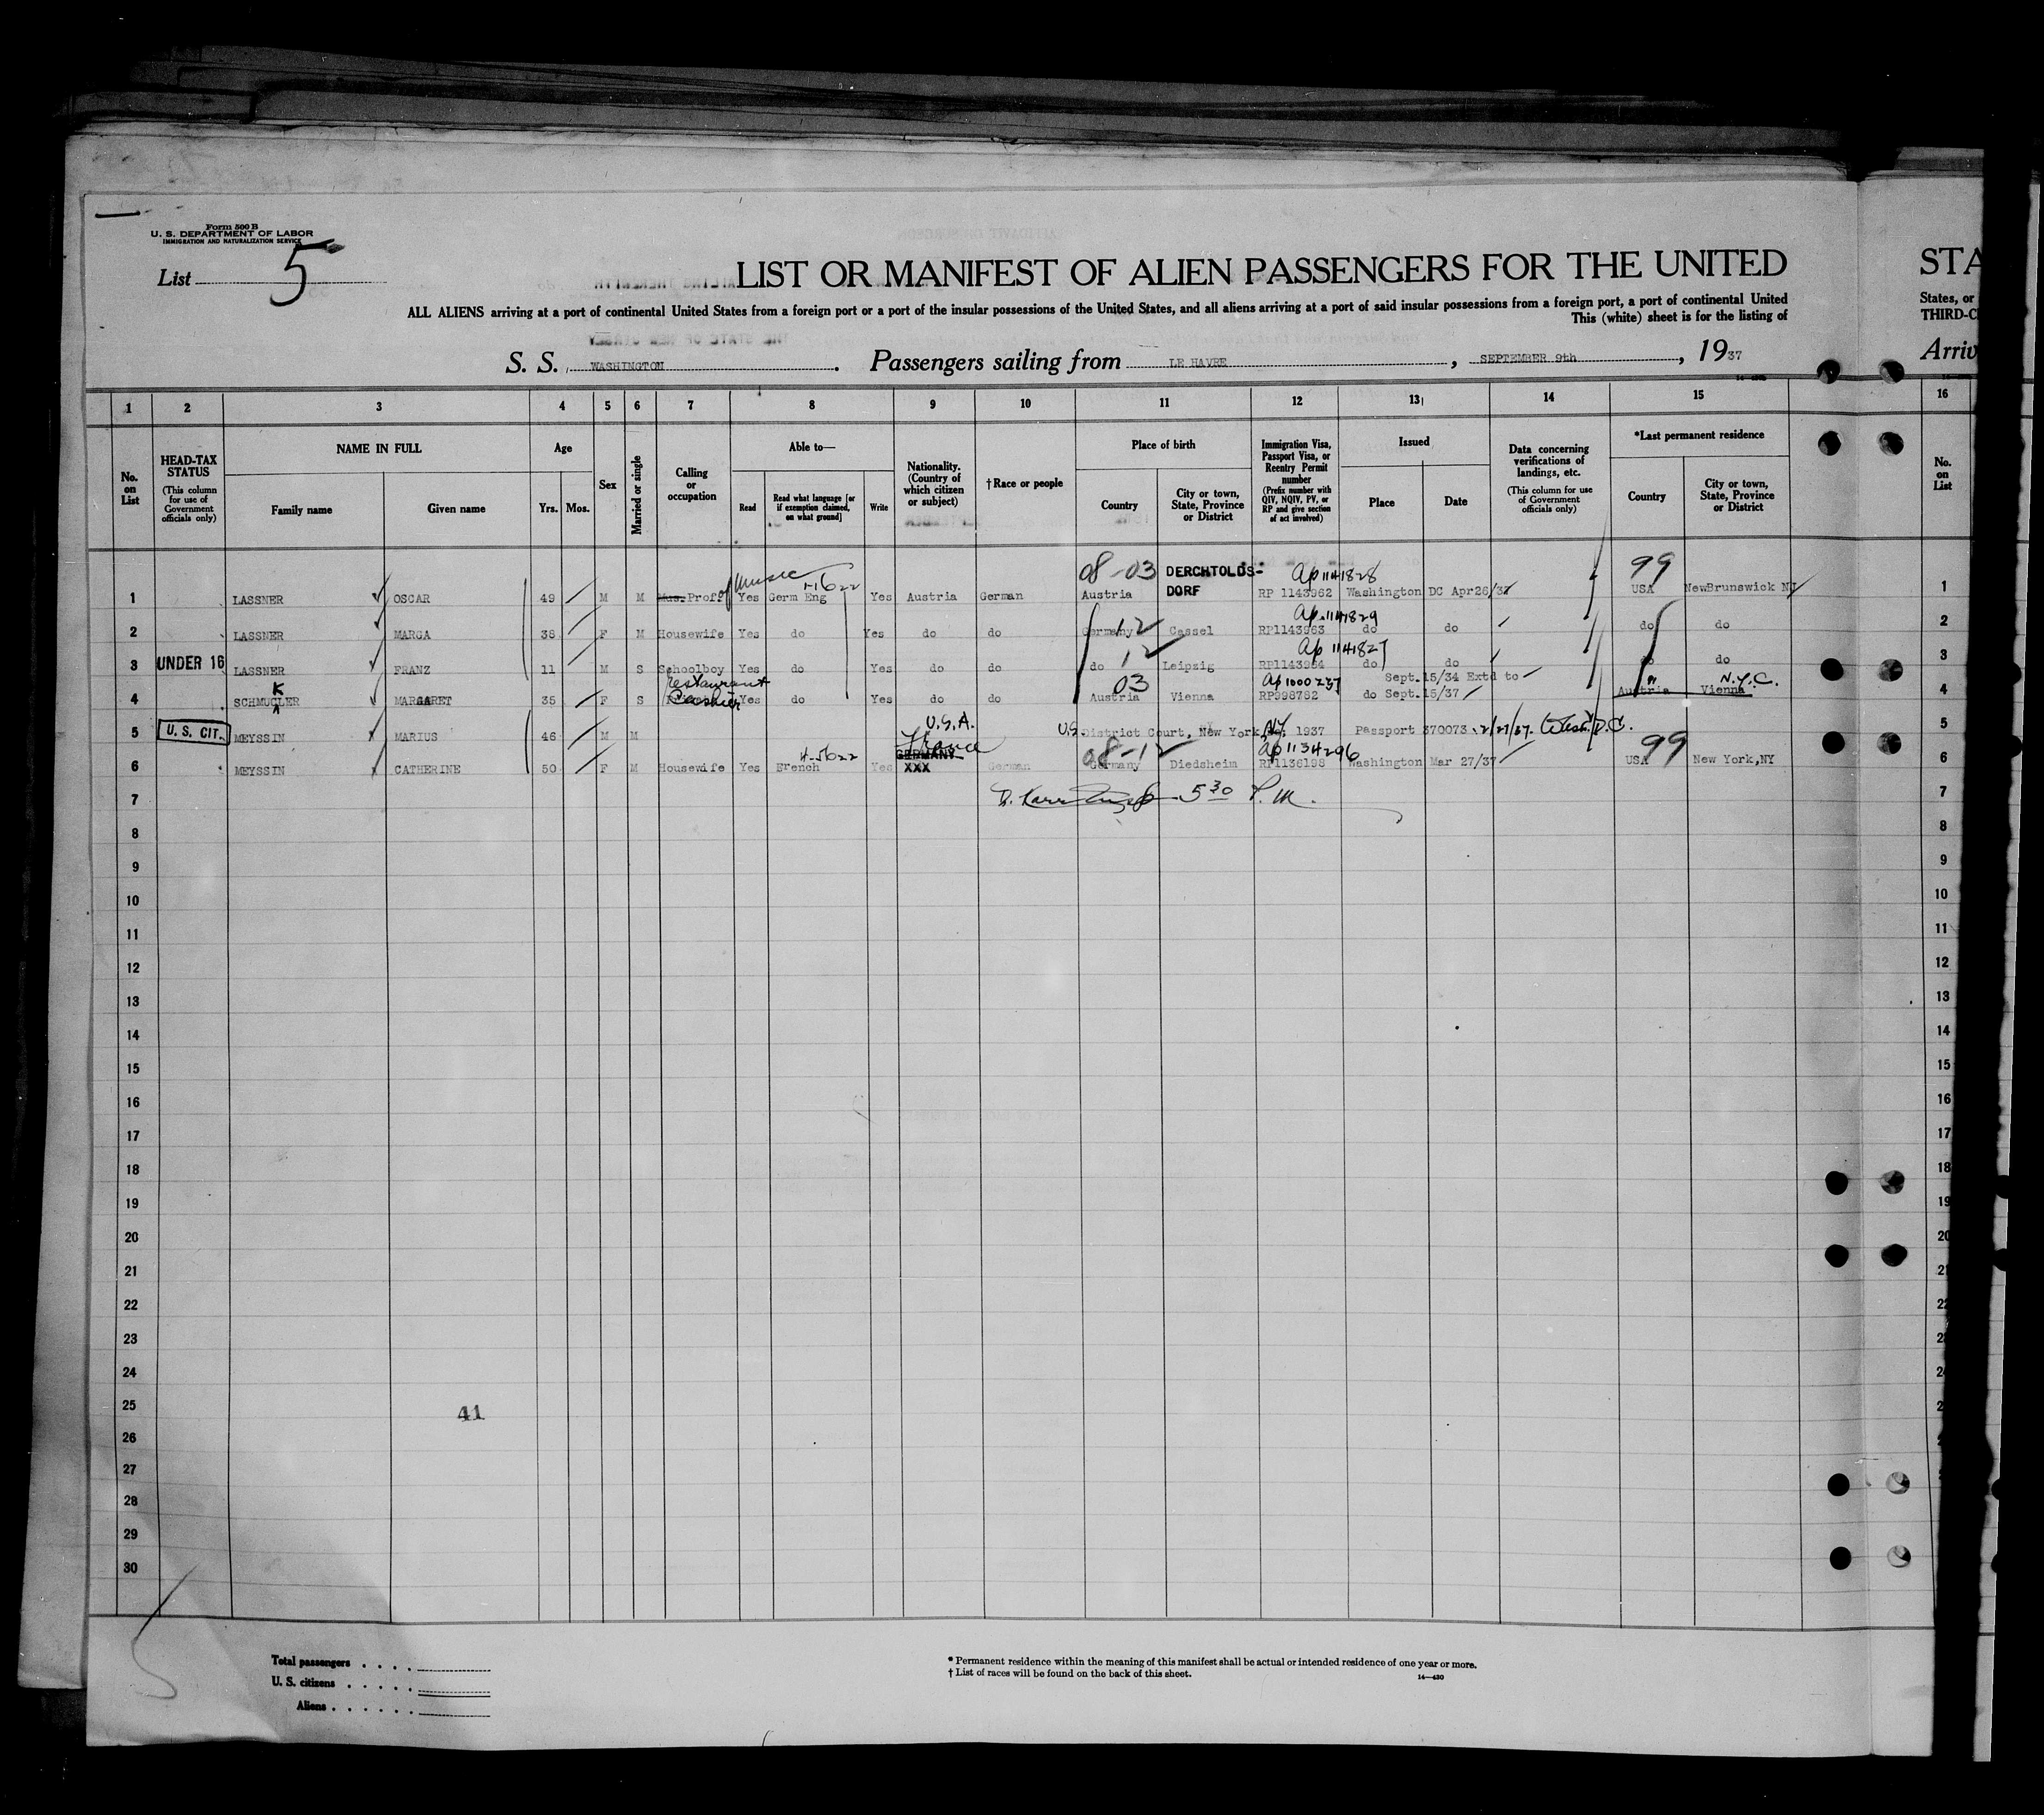 Form 500 B
U. S. DEPARTMENT OF LABOR
IMMIGRATION AND NATURALIZATION SERVICE
List 5
LIST OR MANIFEST OF ALIEN PASSENGERS FOR THE UNITED
STA
ALL ALIENS arriving at a port of continental United States from a foreign port or a port of the insular possessions of the United States, and all aliens arriving at a port of said insular possessions from a foreign port, a port of continental United
States, or
This (white) sheet is for the listing of
THIRD-C
S. S. WASHINGTON. Passengers sailing from LE HAVRE, SEPTEMBER 9th, 1937
Arriv
1 2 3 4 5 6 7 8 9 10 11 12 13 14 15 16
No. on List
HEAD-TAX STATUS
(This column for use of Government officials only)
NAME IN FULL
Family name
Given name
Age
Yrs. Mos.
Sex
Married or single
Calling or occupation
Able to—
Read
Read what language [or if exemption claimed, on what ground]
Write
Nationality. (Country of which citizen or subject)
†Race or people
Place of birth
Country
City or town, State, Province or District
Immigration Visa, Passport Visa, or Reentry Permit number
(Prefix number with QIV, NQIV, PV, or RP and give section of act involved)
Issued
Place
Date
Data concerning verifications of landings, etc.
(This column for use of Government officials only)
*Last permanent residence
Country
City or town, State, Province or District
No. on List
of music 4-5622 08-03 DERCHTOLDS-DORF Ap 1141828 99
1 LASSNER OSCAR 49 M M Mus. Prof Yes Germ Eng Yes Austria German Austria RP 1143962 Washington DC Apr26/37 USA NewBrunswick NJ 1
12 Ap 1141829
2 LASSNER MARGA 38 F M Housewife Yes do Yes do do Germany Cassel RP1143963 do do do do 2
12 Ap 1141827
3 UNDER 16 LASSNER FRANZ 11 M S Schoolboy Yes do Yes do do do Leipzig RP1143964 do do do do 3
K restaurant Cashier 03 Ap 1000237 Sept.15/34 Extd to " N.Y.C.
4 SCHMUCLER MARGARET 35 F S Yes do Yes do do Austria Vienna RP998782 do Sept.15/37 Austria Vienna 4
U.S.A.
5 U. S. CIT. MEYSSIN MARIUS 46 M M U.S. District Court, New York, NY. 1937 Passport 370073 2/27/37. Wash. D.C. 5
4-5622 France 08-12 Ap 1134296 99
6 MEYSSIN CATHERINE 50 F M Housewife Yes French Yes GERMANY XXX German Germany Diedsheim RP1136198 Washington Mar 27/37 USA New York,NY 6
7 5 30 P. M. 7
8 8
9 9
10 10
11 11
12 12
13 13
14 14
15 15
16 16
17 17
18 18
19 19
20 20
21 21
22 22
23 23
24 24
25 41
26
27
28
29
30
Total passengers
U. S. citizens
Aliens
* Permanent residence within the meaning of this manifest shall be actual or intended residence of one year or more.
† List of races will be found on the back of this sheet.
14—430